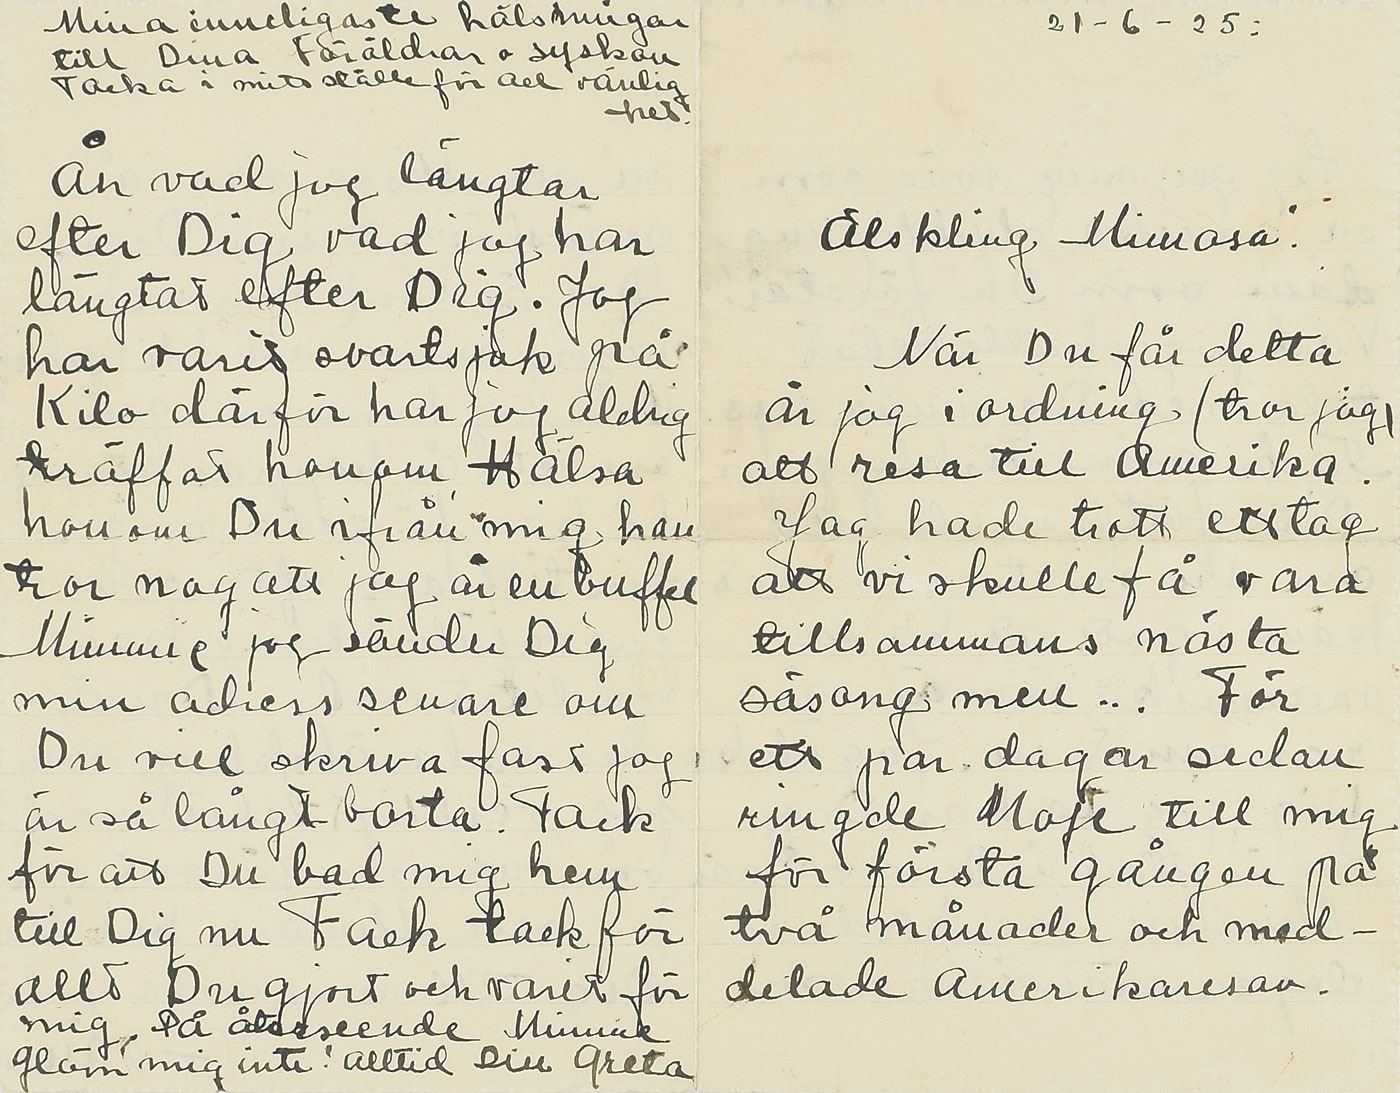 21-6-25:
Älskling Mimosa!
När Du får detta
är jag i ordning (tror jag)
att resa till Amerika.
Jag hade trott ett tag
att vi skulle få vara
tillsammans nästa
säsong men... För
ett par dagar sedan
ringde Moje till mig
för första gången på
två månader och med-
delade Amerikaresan.
Mina innerligaste hälsningar
till Dina Föräldrar o syskon
Tacka i mitt ställe för all vänlig
het!
Åh vad jag längtar
efter Dig vad jag har
längtat efter Dig. Jag
har varit svartsjuk på
Kilo därför har jag aldrig
träffat honom, Hälsa
honom Du ifrån mig han
tror nog att jag är en buffel
Mimmie jag sänder Dig
min adress senare om
Du vill skriva fast jag
är så långt borta. Tack
för att Du bad mig hem
till Dig nu Tack tack för
allt Du gjort och varit för
mig. På återseende Mimmie
glöm mig inte! alltid Din Greta